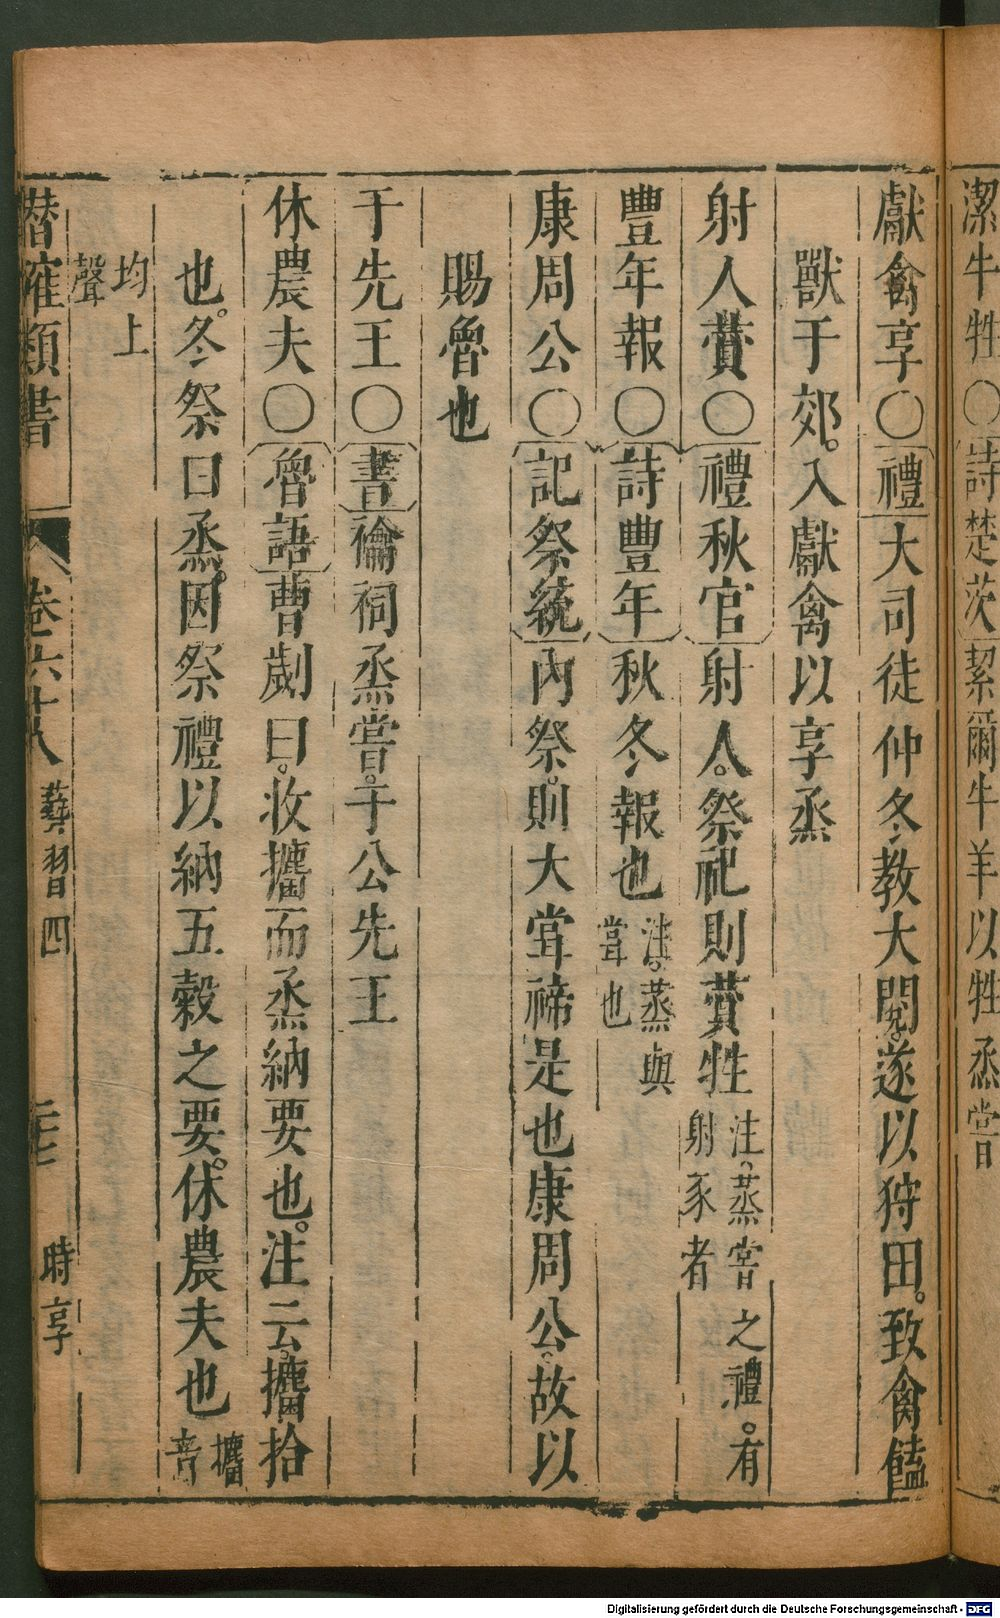 潔牛牲○詩楚茨絜爾牛羊以牲烝嘗
獻禽享○禮大司徒仲冬教大閱遂以狩田致禽饁
獸于郊入獻禽以享烝
射人贊○禮秋官射人祭祀則贊牲注蒸嘗之禮有
射豕者
豐年報○詩豐年秋冬報也注蒸與
嘗也
康周公○記祭統內祭則大嘗禘是也康周公故以
賜魯也
于先王○書禴祠烝嘗于公先王
休農夫○魯語曹劌曰收攟而烝納要也注云攟拾
也冬祭曰烝因祭禮以納五穀之要休農夫也攟
音
均上
聲
潛確類書 卷六十八 藝習四 時享
Digitalisierung gefördert durch die Deutsche Forschungsgemeinschaft - DFG